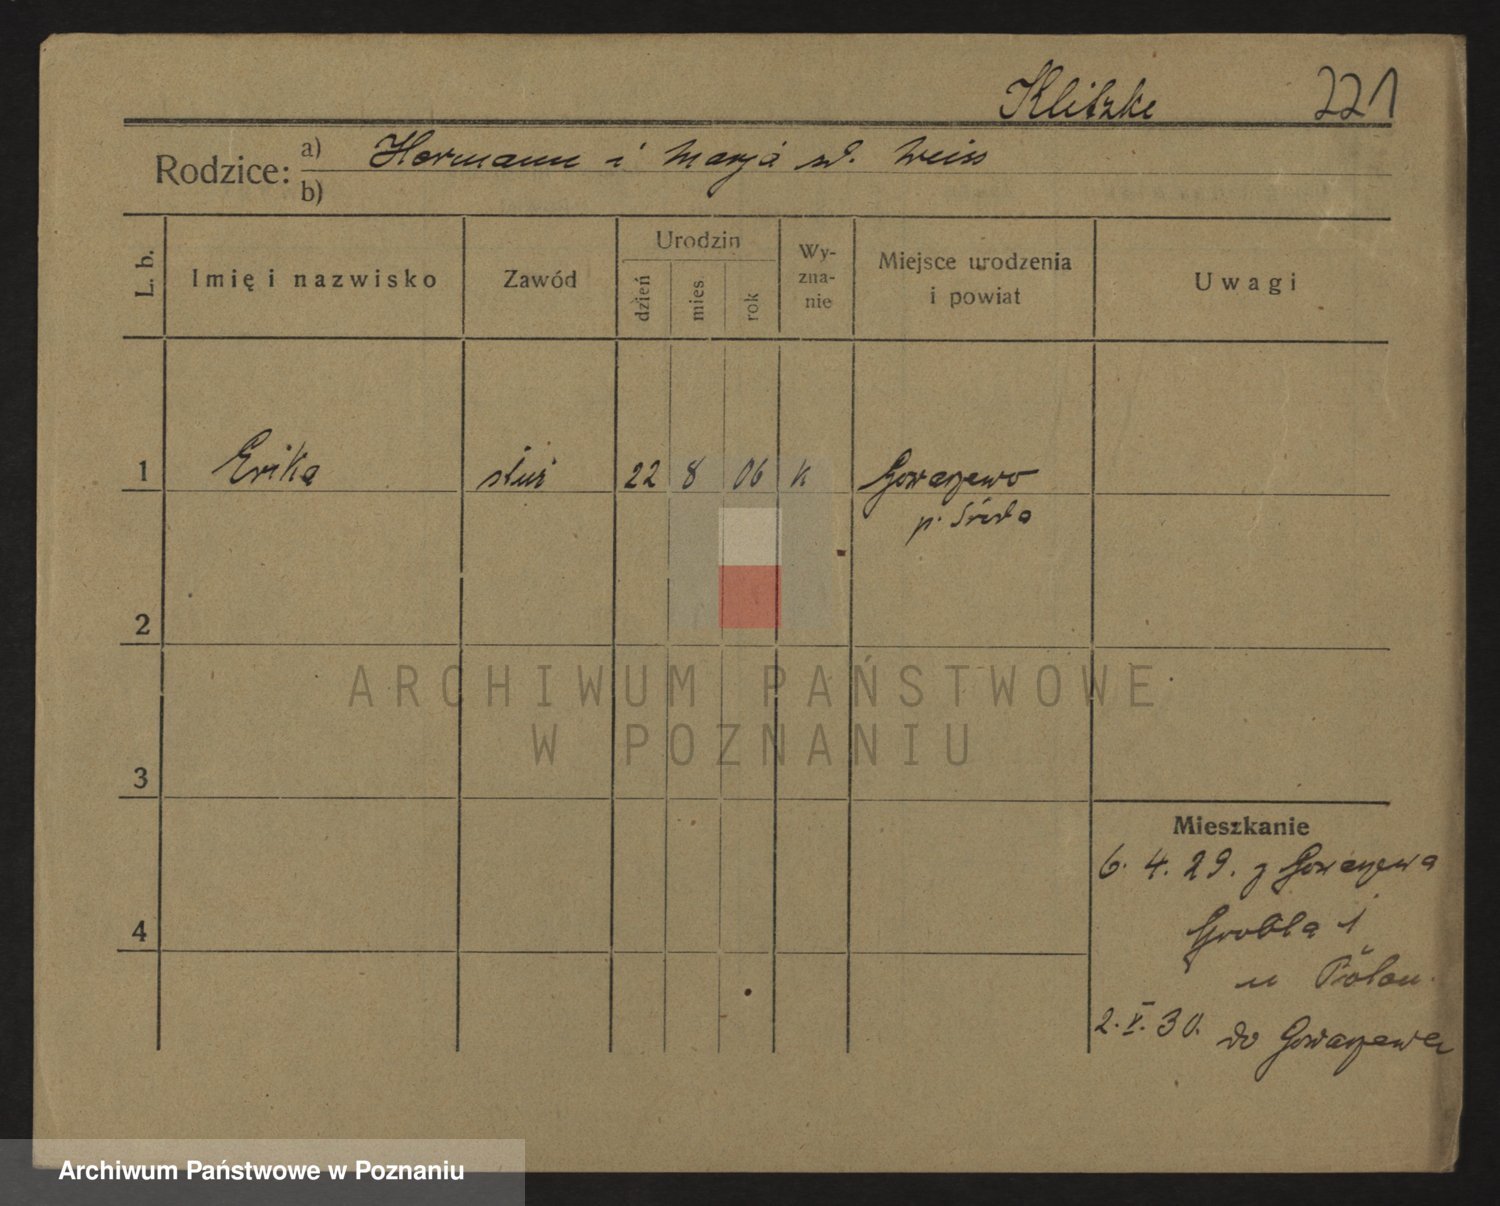 Klitzke 221
Rodzice: a) Hermann i Marja zd. Weiss
b)
L. b. Imię i nazwisko Zawód Urodzin dzień mies rok Wy-zna-nie Miejsce urodzenia i powiat Uwagi
1 Erika służ 22 8 06 k Gowarzewo
p. Środa
2
ARCHIWUM PAŃSTWOWE
W POZNANIU
3
Mieszkanie
6. 4. 29. z Gowarzewa
4 Grobla 1
u
2. V. 30. do Gowarzewa
Archiwum Państwowe w Poznaniu